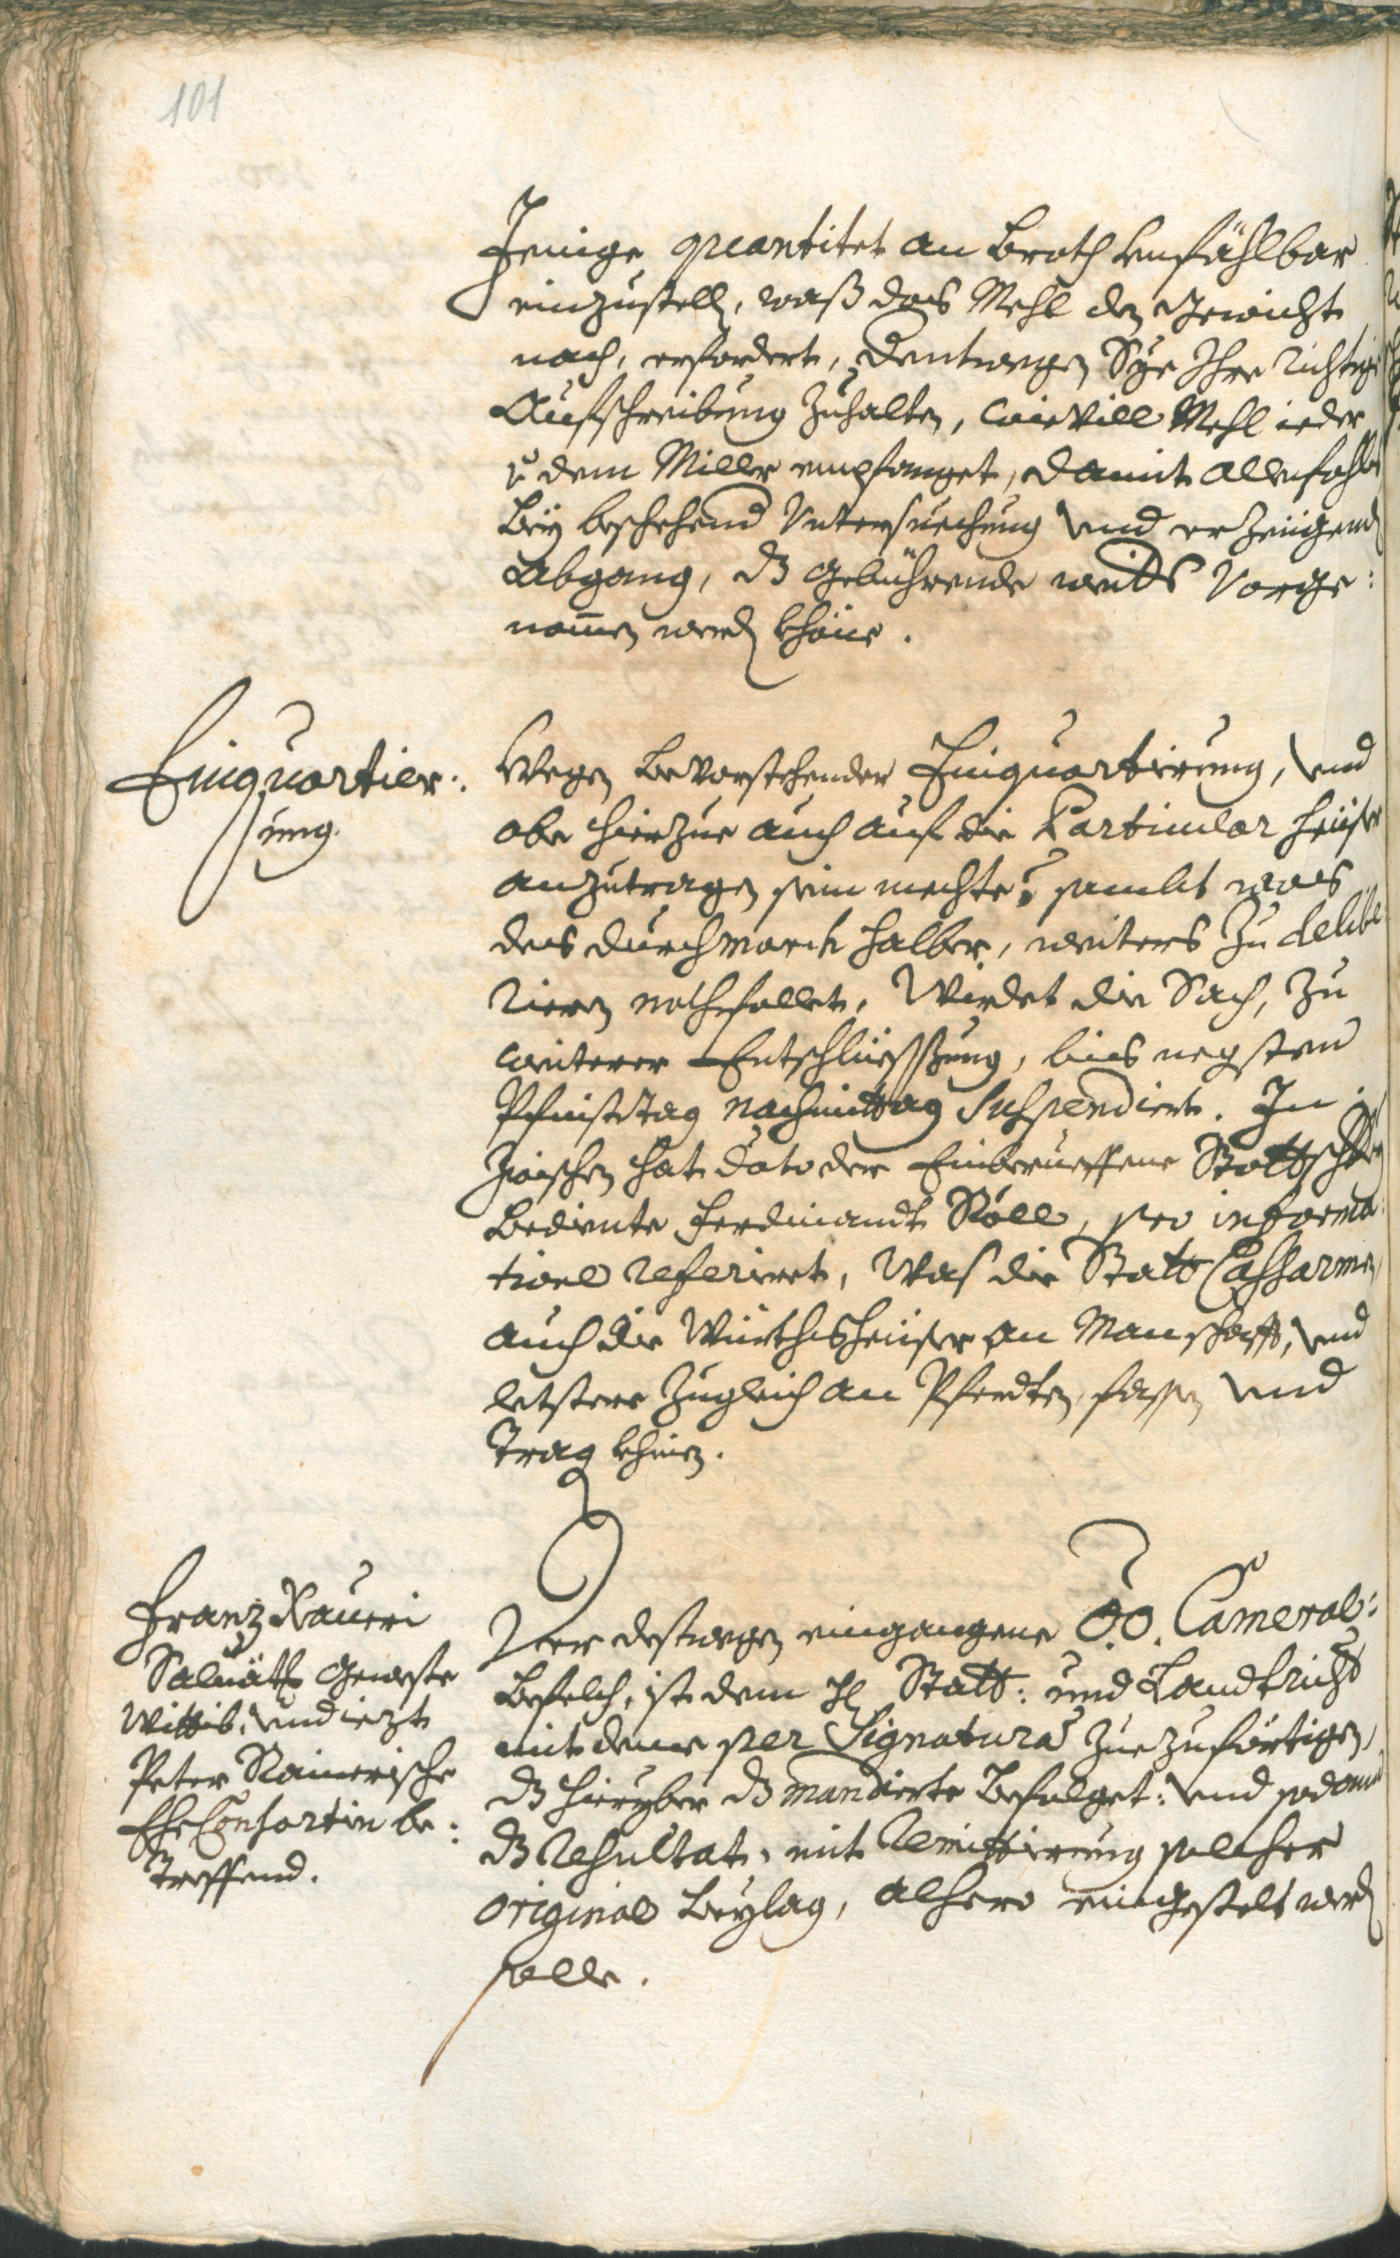 101
Jenige quantitet an Broth unfählbar
einzustelln, waß das Mehl dem Gewicht
nach, erfordert, dentwegen Sye Ihre richtige
Aufschreibung zuhalten, wievill Mehl ieder
v. dem Miller empfanget, damit allenfahls
bey beschehend Untersuechung und erzeigend
Abgang, dz gebührende weitters vorge:
nomen werden khöne.
Einquartier:
ung.
Wegen bevorstehender Einquartierung, und
obe hierzue auch auf die Particular heüser
anzutragen sein mechte? sambt was
des durchmarch halber, weiters zu delibe
rieren nothfallet, Wirdet die Sach, zu
weiterer Entschlüessung, bis negsten
Pfinstag nachmittag suspendiert. In
zwischen hat dato der Einberueffene Statt
Bediente Ferdinandt Röll, pro informa:
tione referiert, Was die Statt Casharmen,
auch die Würthsheüser an Manschafft, und
letstere zugleich an Pferdten, fassen und
tragen khinen.
Franz Xaueri
Saluath geweste
Wittib, und iezt
Peter Rainerische
Ehe Consortin be:
treffend.
Der destwegen eingangene O:O. Cameral:
Befelch, ist dem H. Statt: und Landtricht
mit deme per Signatura zuezuförtigen,
dz hieryber dz mandierte befolget: und sodann
dz resultat, mit remittierung selcher
original beylag, alhero eingestelt werden
solle.